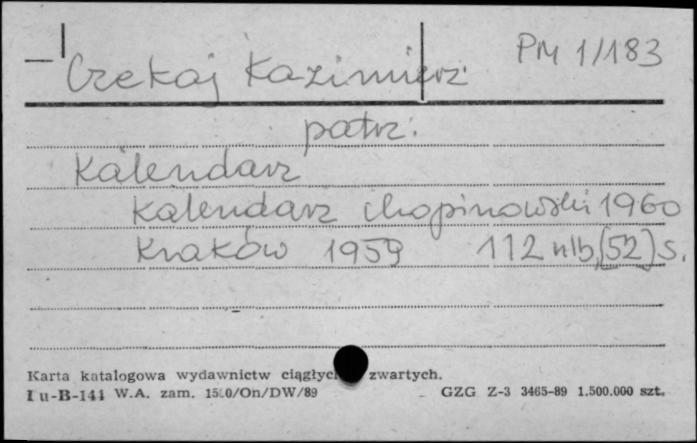 PM 1/183
Czekaj Kazimierz
patrz:
Kalendarz
Kalendarz chopinowski 1960
Kraków 1959 112 nlb, [52] s.
Karta katalogowa wydawnictw ciągłyc zwartych.
I u-B-141 W.A. zam. /On/DW/89 GZG Z-3 3465-89 1.500.000 szt.